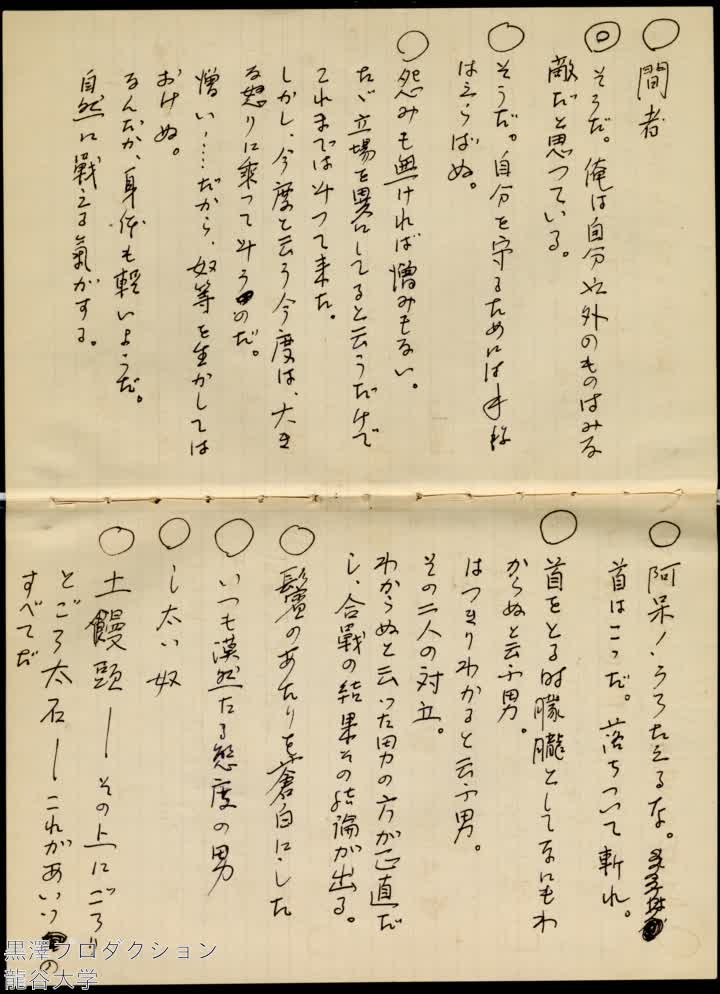 ○ 間者
◎ そうだ。俺は自分以外のものはみな
敵だと思つている。
○ そうだ。自分を守るためには手段
はえらばぬ。
○ 怨みも無ければ憎みもない。
たゞ立場を異にしてると云うだけで
これまでは斗つて来た。
しかし、今度と云う今度は、大き
な怒りに乗つて斗うのだ。
憎い……だから、奴等を生かしては
おけぬ。
るんだか、身体も軽いようだ。
自然に戰える氣がする。
○ 阿呆！うろたえるな。
首は二つだ。落ちついて斬れ。
○ 首をとる時朦朧としてなにもわ
からぬと云ふ男。
はつきりわかると云ふ男。
その二人の対立。
わからぬと云つた男の方が正直だ
し、合戰の結果その結論が出る。
○ 鬢のあたりを蒼白にした
○ いつも漠然たる態度の男
○ し太い奴
○ 土饅頭——その上にごろり
とごろ太石——これがあいつの
すべてだ
黒澤プロダクション
龍谷大学